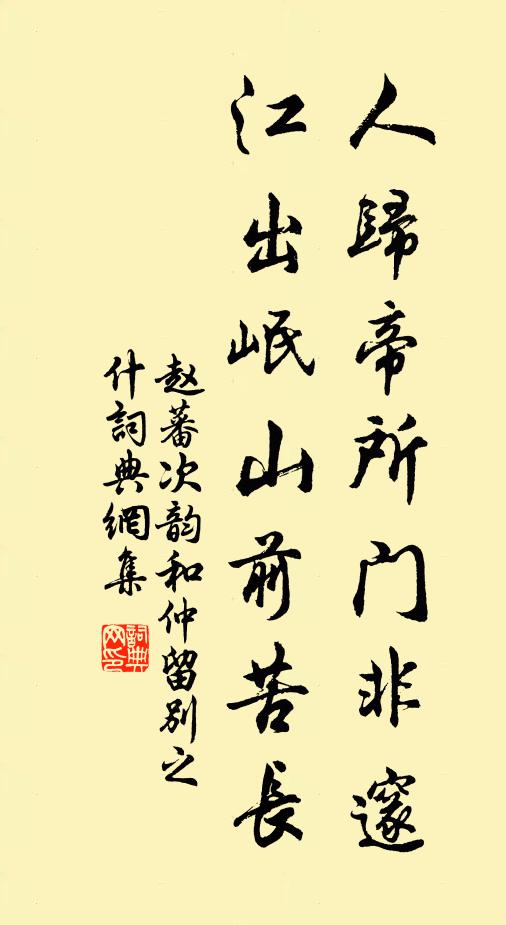 人歸帝所門非邃
江出岷山前苦長
赵蕃次韵和仲留別之
什詞典網集
詞典
网印